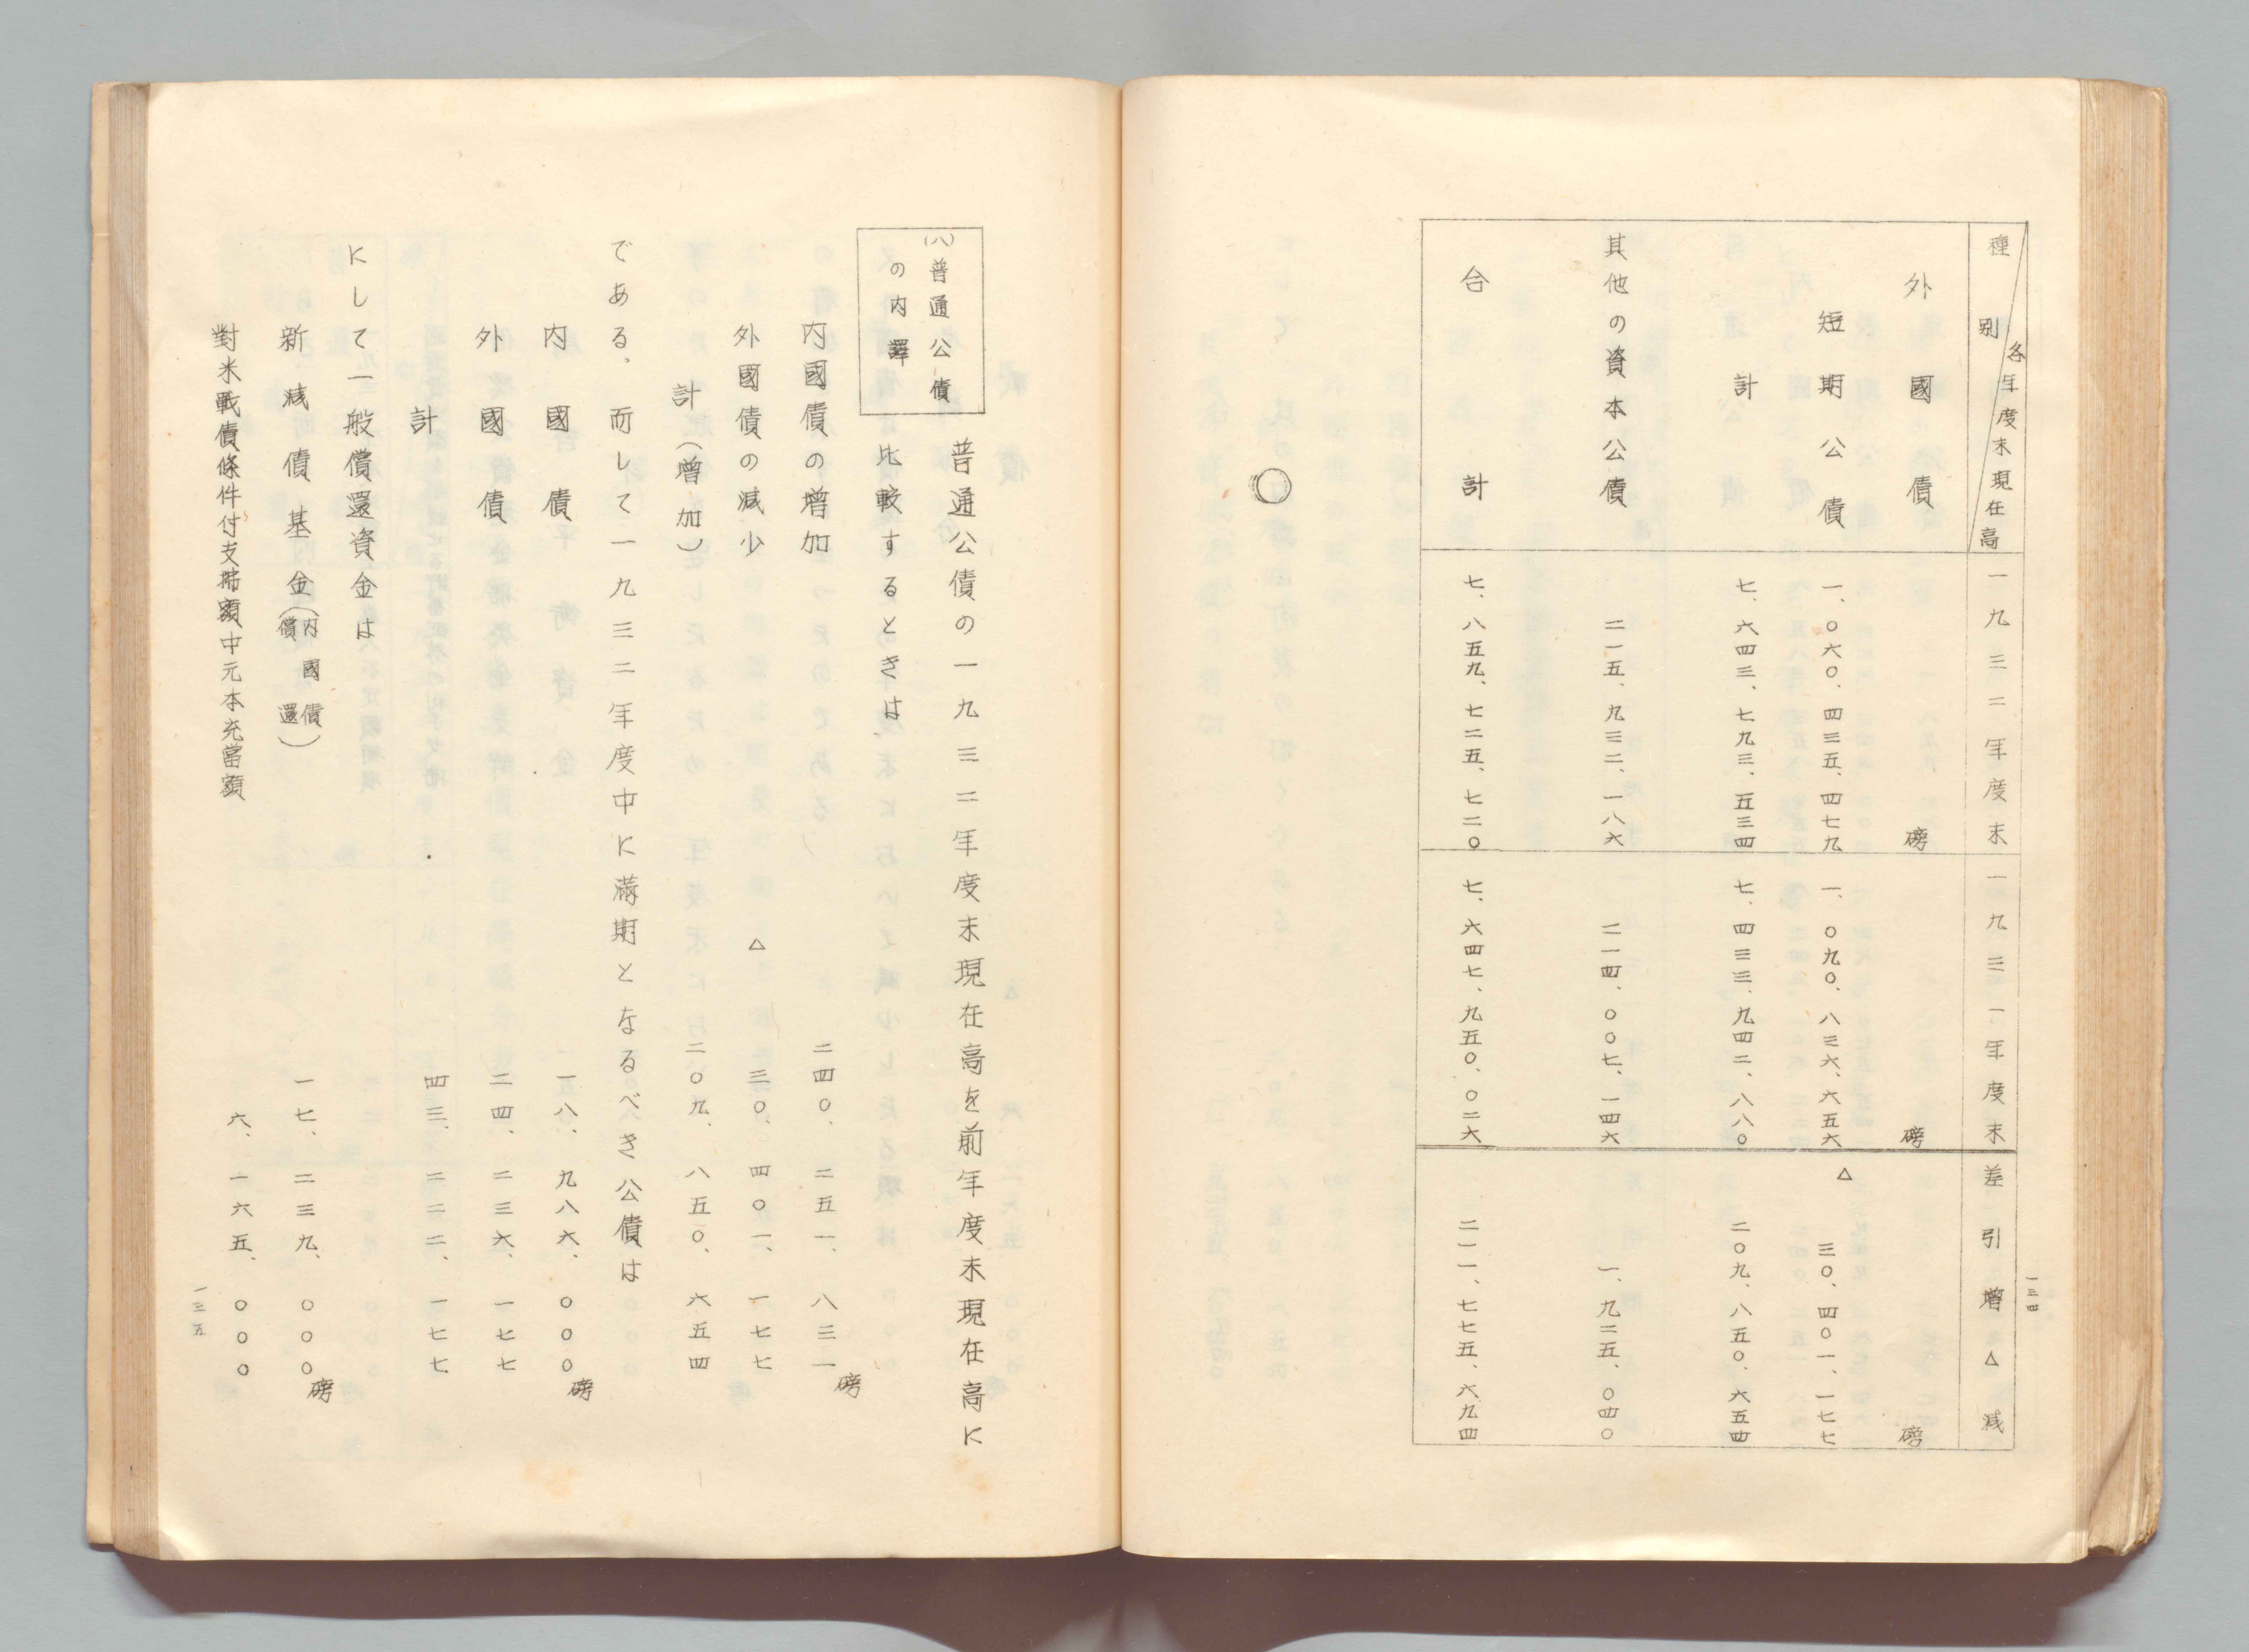 一三四
種別 各年度末現在高 一九三二年度末 一九三一年度末 差引増△減
外國債 磅 磅 磅
短期公債 一、〇六〇、四三五、四七九 一、〇九〇、八三六、六五六 △三〇、四〇一、一七七
計 七、六四三、七九三、五三四 七、四三三、九四二、八八〇 二〇九、八五〇、六五四
其他の資本公債 二一五、九三二、一八六 二一四、〇〇七、一四六 一、九二五、〇四〇
合計 七、八五九、七二五、七二〇 七、六四七、九五〇、〇二六 二一一、七七五、六九四
(八)普通公債
の内譯
普通公債の一九三二年度末現在高を前年度末現在高に
比較するときは
内國債の増加 二四〇、二五一、八三一磅
外國債の減少 △三〇、四〇一、一七七
計(増加) 二〇九、八五〇、六五四
である、而して一九三二年度中に満期となるべき公債は
内國債 一八、九八六、〇〇〇磅
外國債 二四、二三六、一七七
計 四三、二二二、一七七
にして一般償還資金は
新減債基金(内國債償還) 一七、二三九、〇〇〇磅
對米戦債條件付支拂額中元本充當額 六、一六五、〇〇〇
一三五